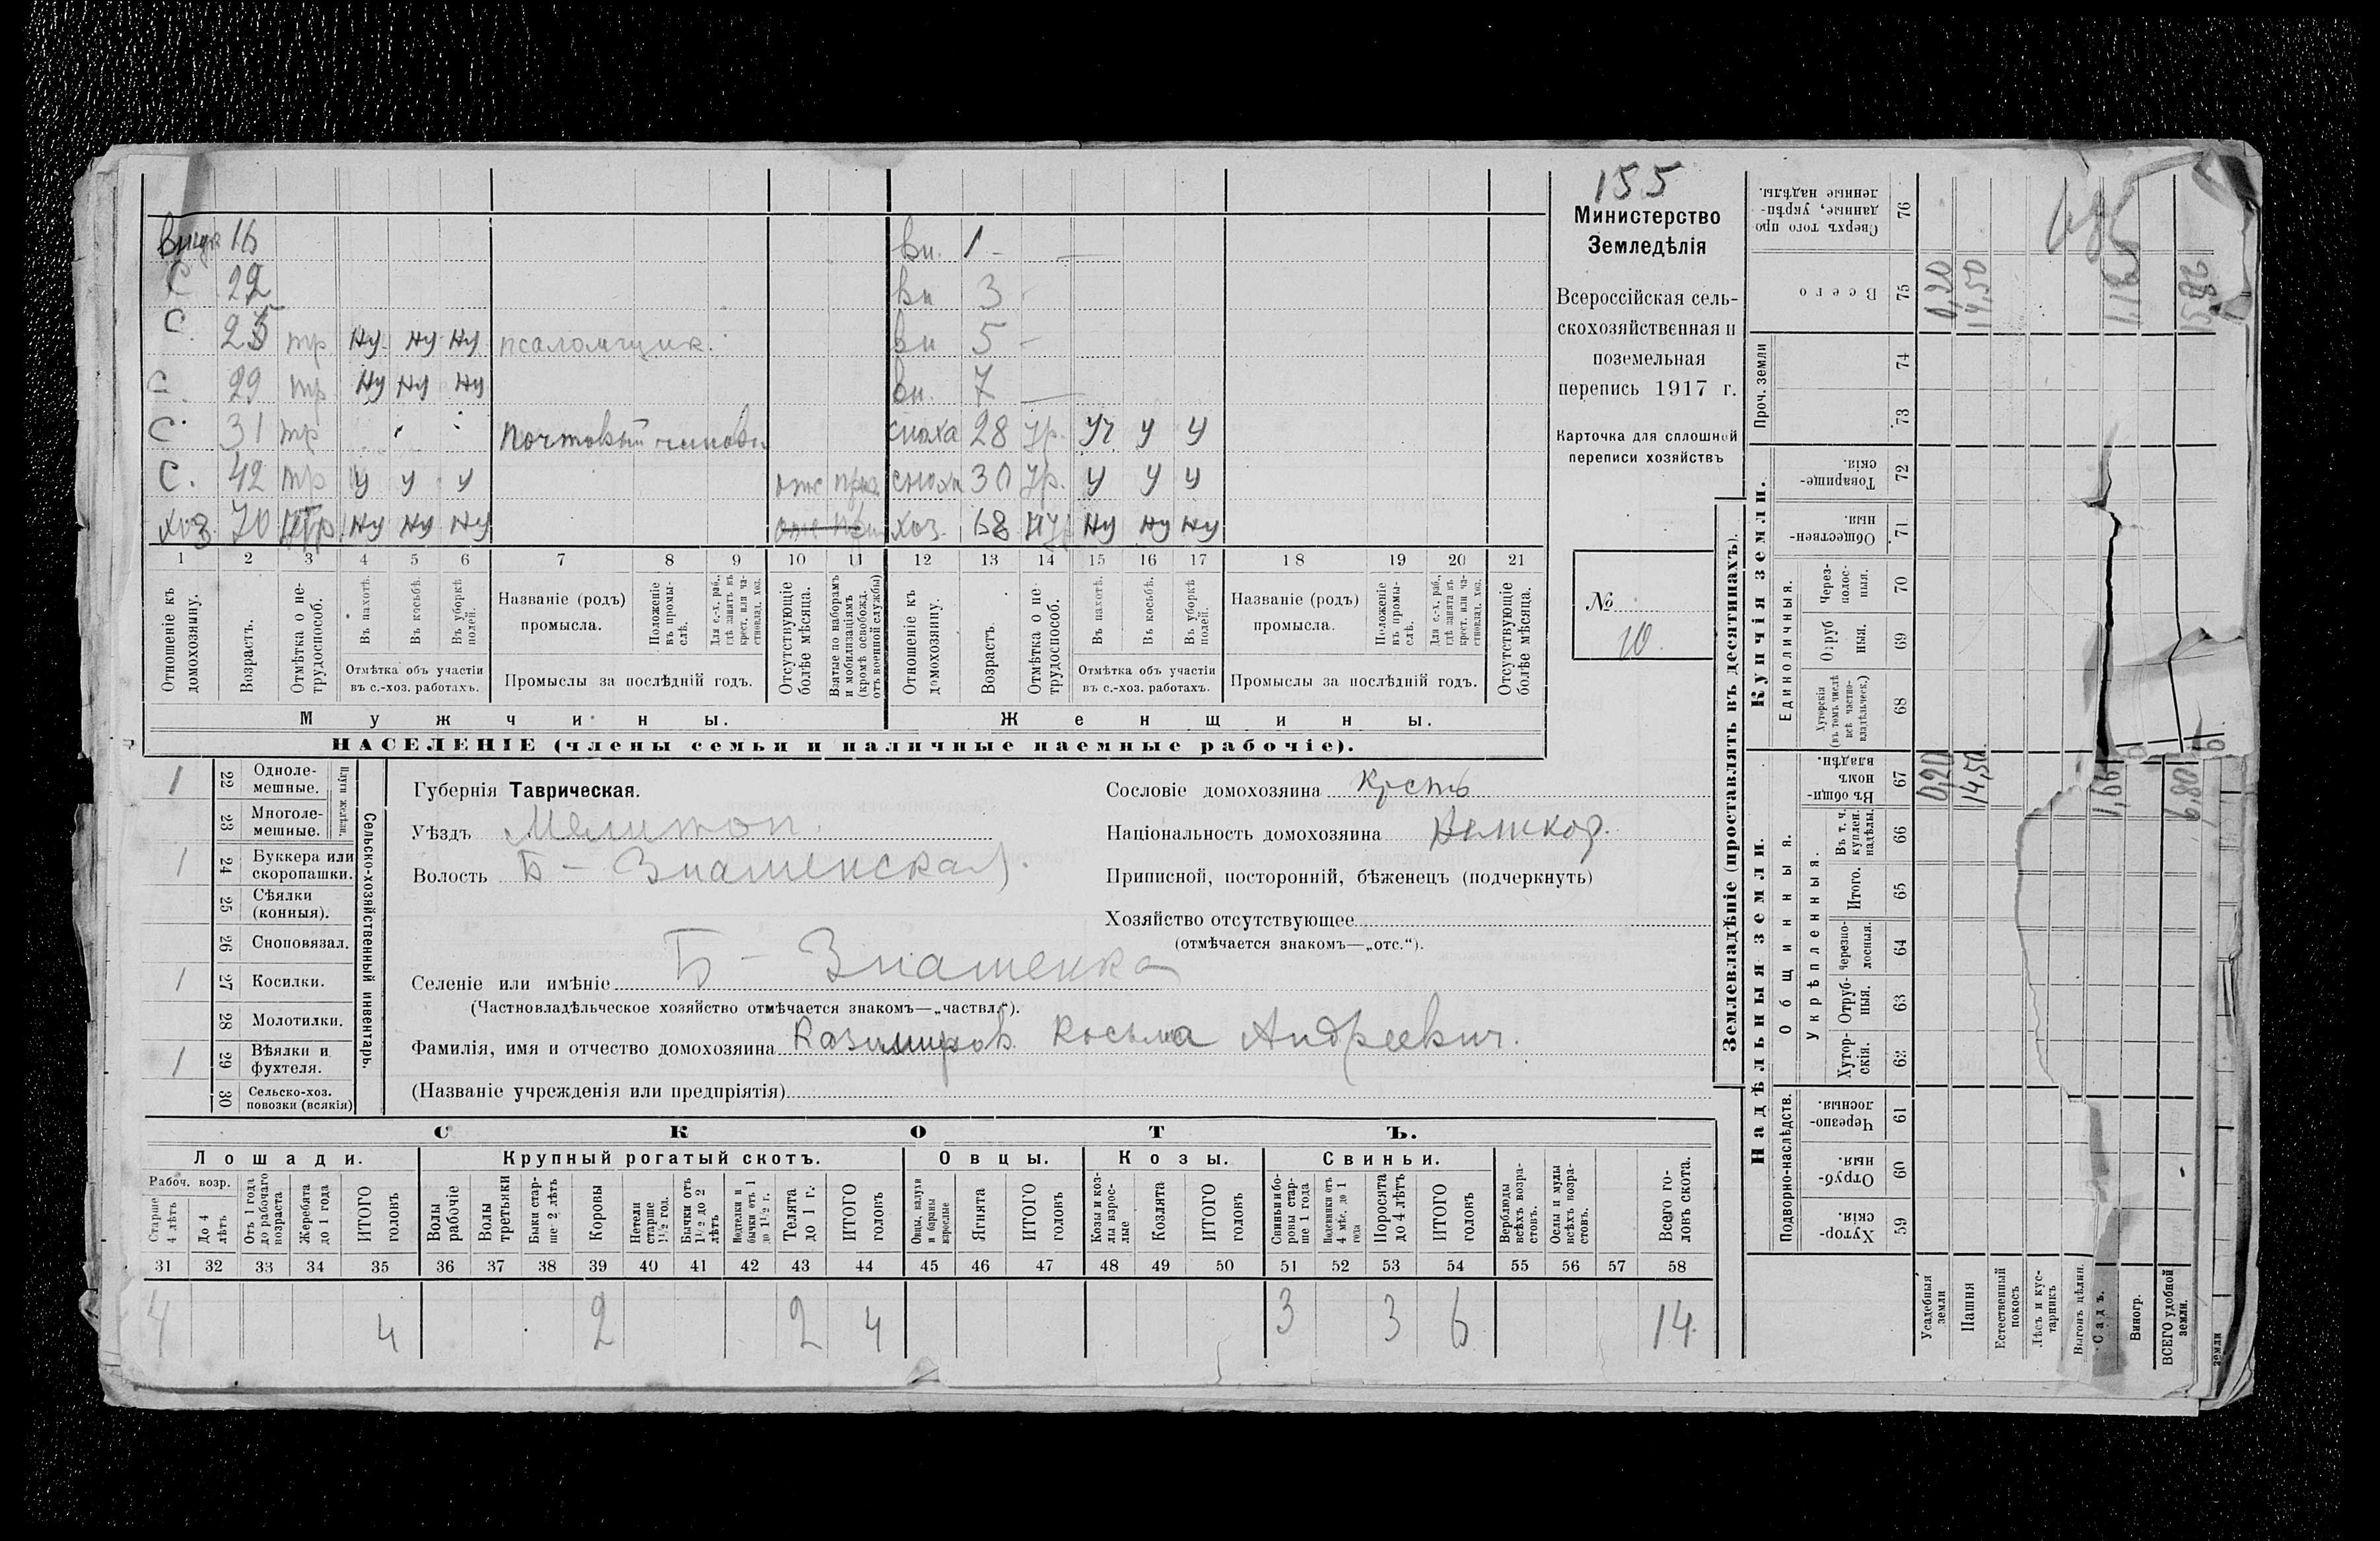 155
Министерство
Земледѣлія
Всероссійская сель-
скохозяйственная и
поземельная
перепись 1917 г.
Карточка для сплошной
переписи хозяйствъ
№
10.
внук 16
С 22
С. 25 тр ну ну ну псаломщик.
С. 29 тр ну ну ну
С. 31 тр Почтовый чиновн
С. 42 тр у у у отс
хоз. 70 нтр ну ну ну
вн. 1 -
вн 3 -
вн 5 -
вн. 7 -
сноха 28 уч у у
сноха 30 у у у
хоз. 68 ну ну ну
1 2 3 4 5 6 7 8 9 10 11 12 13 14 15 16 17 18 19 20 21
Отношеніе къ домохозяину.
Возрастъ.
Отмѣтка о не-трудоспособ.
Въ пахотѣ.
Въ косьбѣ.
Въ уборкѣ полей.
Отмѣтка объ участіи
въ с.-хоз. работахъ.
Названіе (родъ)
промысла.
Положеніе въ промы-слѣ.
Для с.-х. раб., гдѣ занятъ въ крест. или ча-стновлад. хоз.
Промыслы за послѣдній годъ.
Отсутствующіе болѣе мѣсяца.
Взятые по наборамъ и мобилизаціямъ (кромѣ освобожд. отъ военной службы)
Отношеніе къ домохозяину.
Возрастъ.
Отмѣтка о не-трудоспособ.
Въ пахотѣ.
Въ косьбѣ.
Въ уборкѣ полей.
Отмѣтка объ участіи
въ с.-хоз. работахъ.
Названіе (родъ)
промысла.
Положеніе въ промы-слѣ.
Для с.-х. раб., гдѣ занята въ крест. или ча-стновлад. хоз.
Промыслы за послѣдній годъ.
Отсутствующіе болѣе мѣсяца.
Мужчины.
Женщины.
НАСЕЛЕНІЕ (члены семьи и наличные наемные рабочіе).
1 22 Однолемешные.
23 Многолемешные.
Плуги желѣзн.
1 24 Буккера или скоропашки.
25 Сѣялки (конныя).
26 Сноповязал.
1 27 Косилки.
28 Молотилки.
1 29 Вѣялки и фухтеля.
30 Сельско-хоз. повозки (всякія)
Сельско-хозяйственный инвентарь.
Губернія Таврическая.
Уѣздъ Мелитоп.
Волость Б - Знаменская.
Сословіе домохозяина Крест
Національность домохозяина Великор.
Приписной, посторонній, бѣженецъ (подчеркнуть)
Хозяйство отсутствующее
(отмѣчается знакомъ—„отс.“).
Селеніе или имѣніе Б - Знаменка
(Частновладѣльческое хозяйство отмѣчается знакомъ—„частвл.“).
Фамилія, имя и отчество домохозяина Казимиров Косьма Андреевич.
(Названіе учрежденія или предпріятія)
СКОТЪ.
Лошади. Крупный рогатый скотъ. Овцы. Козы. Свиньи.
Рабоч. возр.
Старше 4 лѣтъ
До 4 лѣтъ
Отъ 1 года до рабочаго возраста
Жеребята до 1 года
ИТОГО головъ
Волы рабочіе
Волы третьяки
Быки стар-ше 2 лѣтъ
Коровы
Нетели старше 1½ год.
Бычки отъ 1½ до 2 лѣтъ
Подтелки и бычки отъ 1 до 1½ г.
Телята до 1 г.
ИТОГО головъ
Овцы, валухи и бараны взрослые
Ягнята
ИТОГО головъ
Козы и коз-лы взрос-лые
Козлята
ИТОГО головъ
Свиньи и бо-ровы стар-ше 1 года
Подсвинки отъ 4 мѣс. до 1 года
Поросята до 4 лѣтъ
ИТОГО головъ
Верблюды всѣхъ возра-стовъ.
Ослы и мулы всѣхъ возра-стовъ.
Всего го-ловъ скота.
31 32 33 34 35 36 37 38 39 40 41 42 43 44 45 46 47 48 49 50 51 52 53 54 55 56 57 58
4 4 2 2 4 3 3 6 14
Землевладѣніе (проставлять въ десятинахъ).
Надѣльныя земли.
Купчія земли.
Подворно-наслѣдств.
Общинныя.
Укрѣпленныя.
Единоличныя.
Проч. земли
Хутор-скія. 59
Отруб-ныя. 60
Черезпо-лосныя. 61
Хутор-скія. 62
Отруб-ныя. 63
Черезпо-лосныя. 64
Итого. 65
Въ т. ч. куплен. надѣлы. 66
Въ общи-номъ владѣн. 67
Хуторскія (въ томъ числѣ всѣ частно-владѣльческ.) 68
Отруб ныя. 69
Через-полос-ныя. 70
Обществен-ныя. 71
Товарище-скія. 72
73
74
Всего 75
Сверхъ того про-данные, укрѣп-ленные надѣлы. 76
Усадебныя земли 0,20 0,20
Пашня 14,50 14,50
Естественный покосъ
Лѣсъ и кус-тарникъ
Выгонъ цѣлин.
Садъ.
Виногр.
ВСЕГО удобной земли.
земли